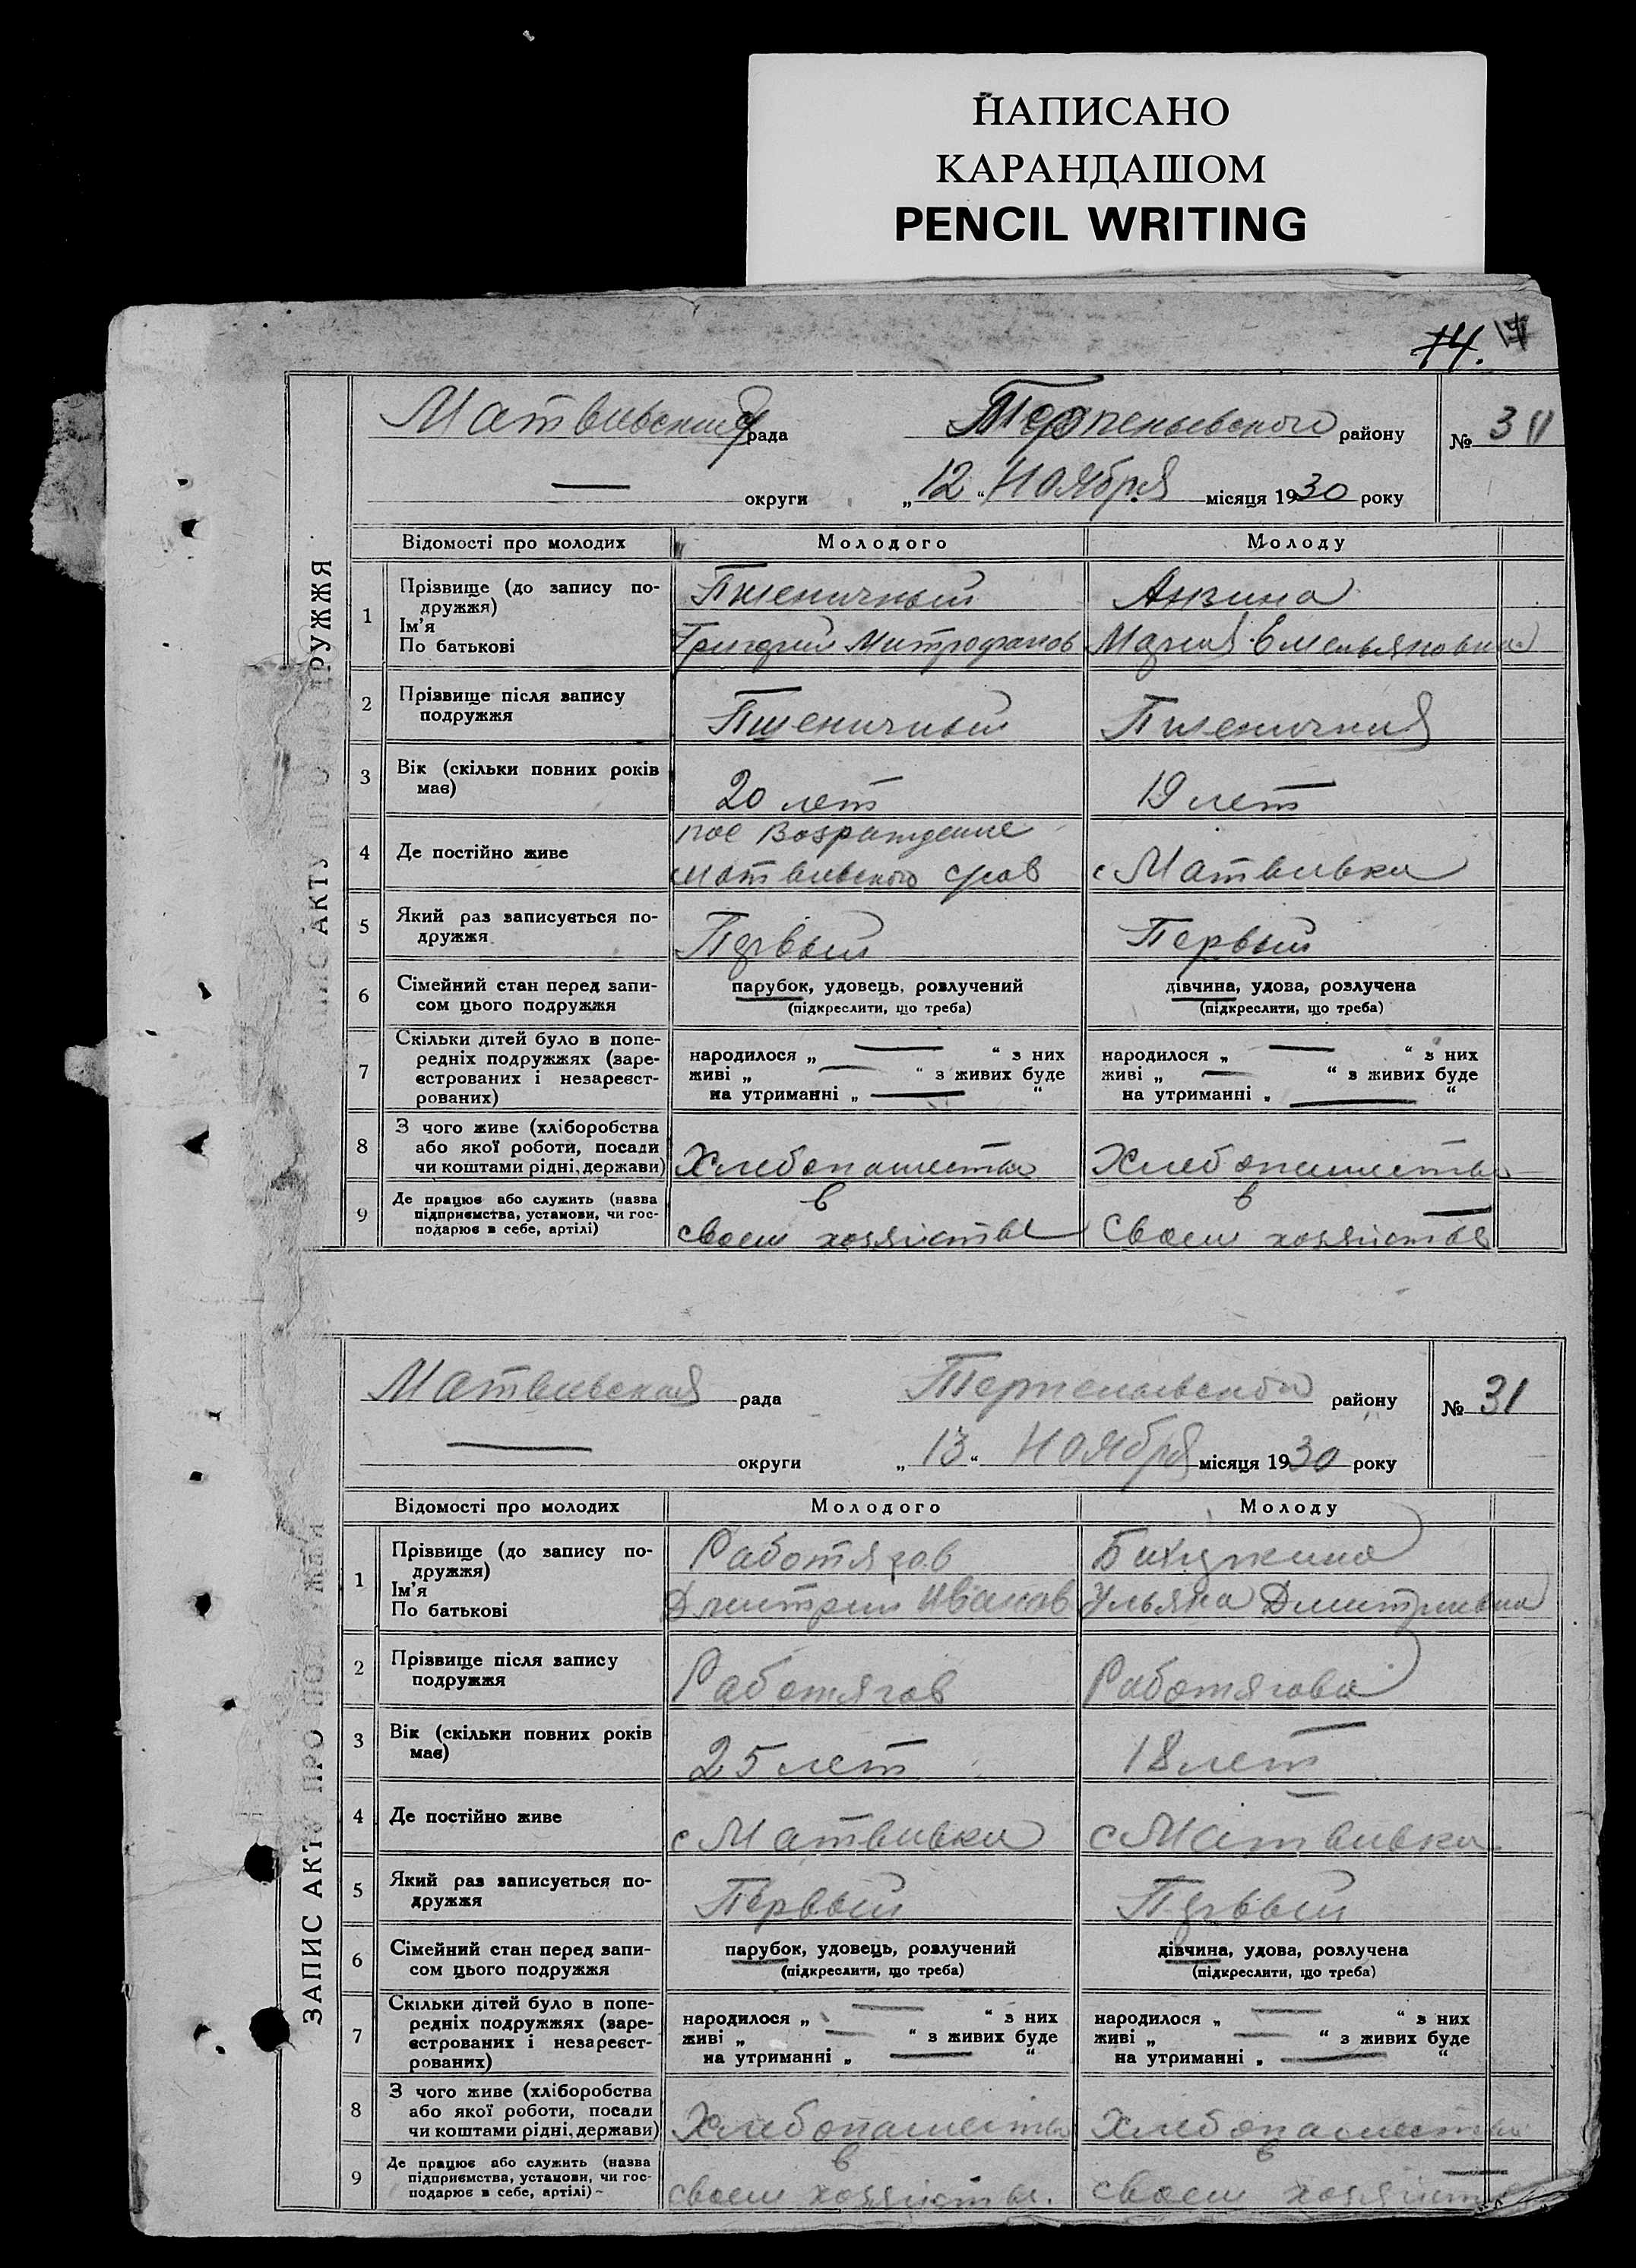 НАПИСАНО
КАРАНДАШОМ
PENCIL WRITING
14.
ЗАПИС АКТУ ПРО ПОДРУЖЖЯ
Матвиевский рада Терпеньевского району № 30
— округи „12“ Ноября місяця 1930 року
Відомості про молодих Молодого Молоду
1 Прізвище (до запису подружжя) Пшеничный Анзина
Ім’я
По батькові Григорий Митрофанов Мария Емельяновна
2 Прізвище після запису
подружжя Пшеничный Пшеничная
3 Вік (скільки повних років
має) 20 лет 19 лет
4 Де постійно живе пос Возрождение
Матвиевского с Матвивка
5 Який раз записується по-
дружжя Первый Первый
6 Сімейний стан перед запи- парубок, удовець, розлучений дівчина, удова, розлучена
сом цього подружжя (підкреслити, що треба) (підкреслити, що треба)
7 Скільки дітей було в попе-
редніх подружжях (заре- народилося „ — “ з них народилося „ — “ з них
єстрованих і незареєст- живі „ — “ з живих буде живі „ — “ з живих буде
рованих) на утриманні „ — “ на утриманні „ — “
8 З чого живе (хліборобства
або якої роботи, посади
чи коштами рідні, держави) Хлебопашество Хлебопашество
9 Де працює або служить (назва в в
підприємства, установи, чи гос-
подарює в себе, артілі) своем хозяйстве Своем хозяйстве
ЗАПИС АКТУ ПРО ПОДРУЖЖЯ
Матвиевская рада Терпеньевского району № 31
— округи „13“ Ноября місяця 1930 року
Відомості про молодих Молодого Молоду
1 Прізвище (до запису по-
дружжя) Работягов
Ім’я
По батькові Дмитрий Иванов Ульяна Дмитриевна
2 Прізвище після запису
подружжя Работягов Работягова
3 Вік (скільки повних років
має) 25 лет 18 лет
4 Де постійно живе с Матвивка с Матвивка
5 Який раз записується по-
дружжя Первый Первый
6 Сімейний стан перед запи- парубок, удовець, розлучений дівчина, удова, розлучена
сом цього подружжя (підкреслити, що треба) (підкреслити, що треба)
7 Скільки дітей було в попе-
редніх подружжях (заре- народилося „ — “ з них народилося „ — “ з них
єстрованих і незареєст- живі „ — “ з живих буде живі „ — “ з живих буде
рованих) на утриманні „ — “ на утриманні „ — “
8 З чого живе (хліборобства
або якої роботи, посади
чи коштами рідні, держави) Хлебопашество Хлебопашество
9 Де працює або служить (назва в в
підприємства, установи, чи гос-
подарює в себе, артілі) своем хозяйстве. своем хозяйстве